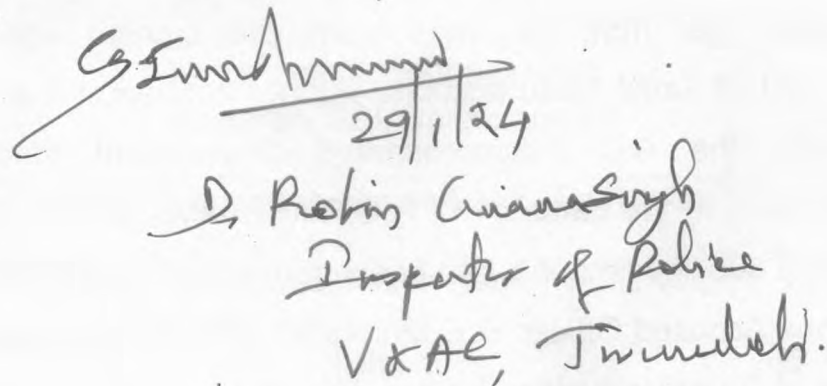 29/1/24
D. Robin Gnanasingh
Inspector of Police
V&AC, Tirunelveli.